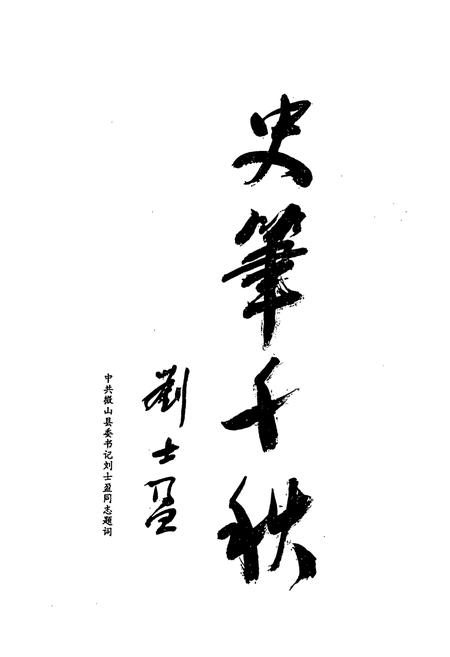 史筆千秋
劉士盈
中共微山县委书记刘士盈同志题词